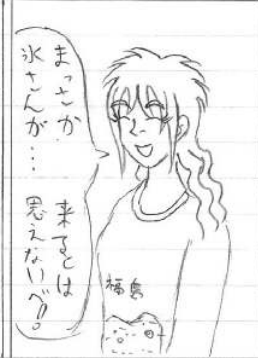 まっさか
氷さんが…
来るとは
思えないべ!。
福島